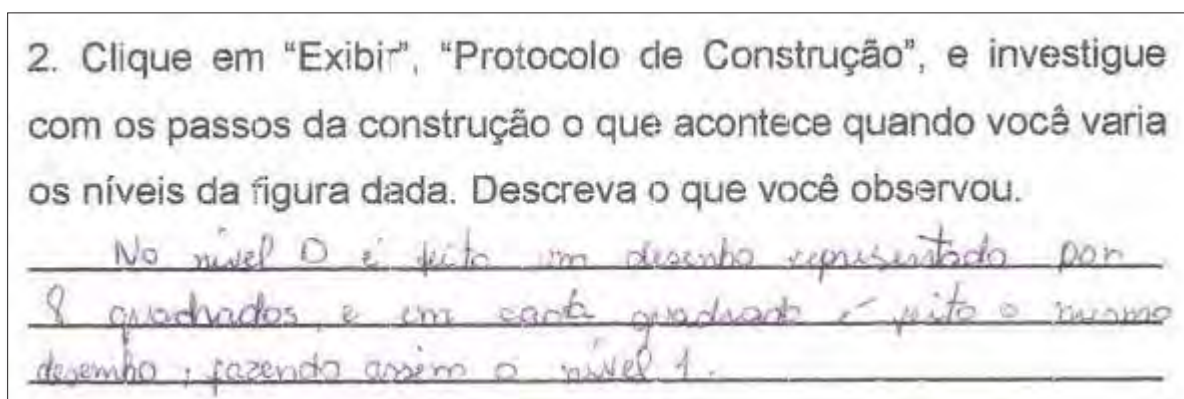 2. Clique em “Exibir”, “Protocolo de Construção”, e investigue
com os passos da construção o que acontece quando você varia
os níveis da figura dada. Descreva o que você observou.
No nível 0 é feito um desenho representado por
8 quadrados, e em cada quadrado é feito o mesmo
desenho, fazendo assim o nível 1.